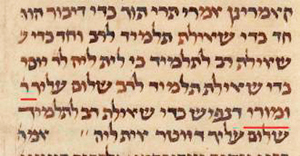 דאמרינן אמרי תרי תוך כדי דיבור הוו
חד כדי שאילת תלמיד לרב וחד כדי ש
שאילת רב לתלמיד כי לית ליה לר׳ יוסי
כדי שאילת תלמיד לרב שלום עליך ר׳
ומורי דנפיש כדי שאילת רב לתלמיד
שלום עליך דווטר אית ליה אמ׳